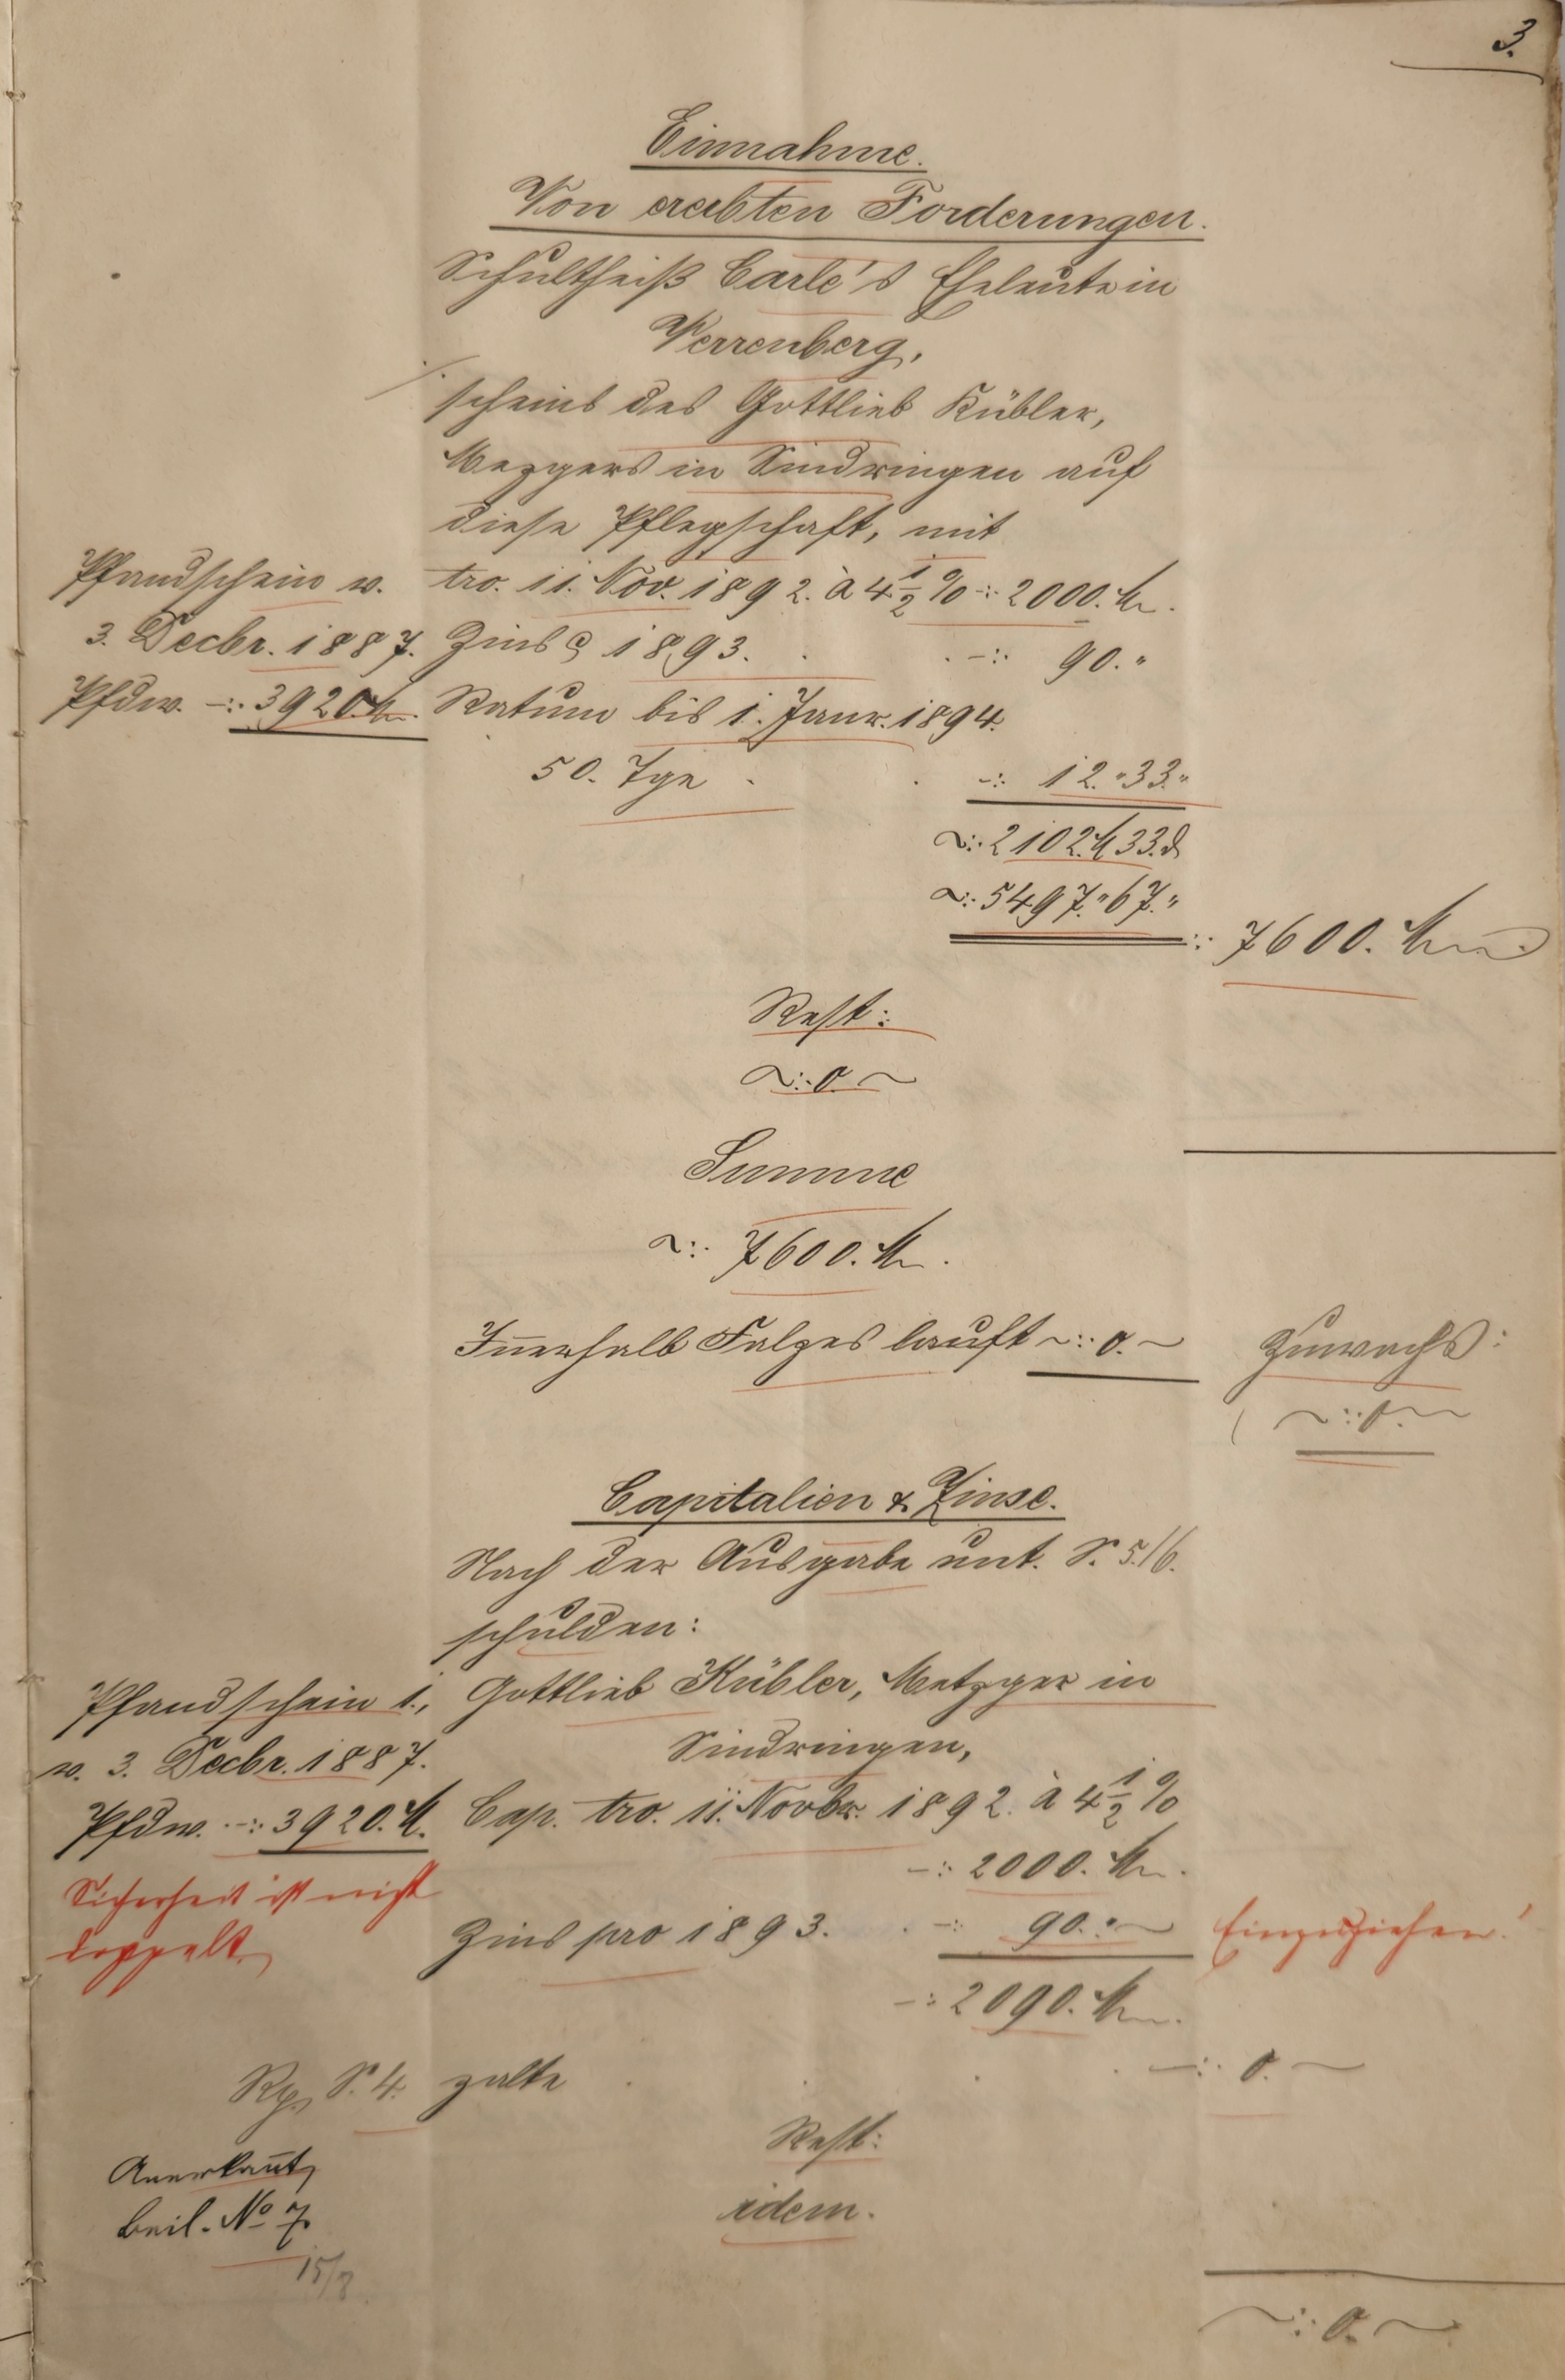 3.
Einnahme.
Von ererbten Forderungen.
Schultheiß Carle's Eheleute in
Verrenberg,
scheins des Gottlieb Kübler,
Mezgers in Sindringen auf
diese Pflegschaft, mit
Pfandschein v. tro. 11. Nov. 1892. à 4½% -: 2000. M.
3. Decbr. 1887. Zins 1893. . . -: 90. "
Pfdw. -: 3920 M. Ratum bis 1. Janr. 1894.
50. Tge . . -: 12. " 33. "
~: 2102. M 33. d
~: 5497. " 67. "
-: 7600. M
Rest:
~: 0. ~
Summe
~: 7600. M.
Innerhalb Falzes lauft ~: 0. ~ Zuwachs:
~: 0. ~
Capitalien & Zinse.
Nach der Ausgabe unt. S. 5./6.
schulden:
Pfandschein 1., Gottlieb Kübler, Metzger in
v. 3. Decbr. 1887. Sindringen,
Pfdw. -: 3920. M. Cap. tro. 11. Novbr. 1892. à 4½%
-: 2000. M.
Sicherheit ist nicht
doppelt.
Zins pro 1893. . -: 90. " ~ Einzuziehen!
-: 2090. M.
Rp. S. 4. zalte . . . . -: 0. ~
Rest:
Anerkannt,
beil. No 7. idem.
15/8
~: 0. ~